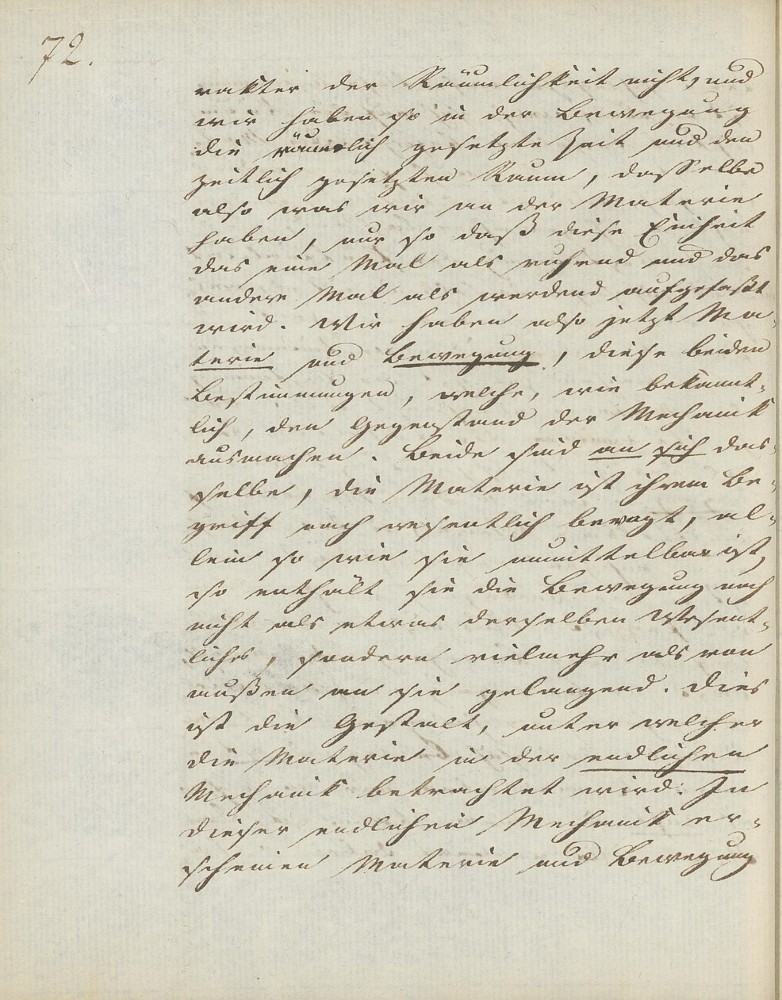 72.
rakter der Räumlichkeit nicht, und
wir haben so in der Bewegung
die räumlich gesetzte Zeit und den
zeitlich gesetzten Raum, dasselbe
also was wir an der Materie
haben, nur so daß diese Einheit
das eine Mal als ruhend und das
andere Mal als werdend aufgefaßt
wird. Wir haben also jetzt Ma-
terie und Bewegung, diese beiden
Bestimmungen, welche, wie bekannt-
lich, den Gegenstand der Mechanik
ausmachen. Beide sind an sich das-
selbe, die Materie ist ihrem Be-
griff nach wesentlich bewegt, al-
lein so wie sie unmittelbar ist,
so enthält sie die Bewegung noch
nicht als etwas derselben Wesent-
liches, sondern vielmehr als von
außen an sie gelangend. Dies
ist die Gestalt, unter welcher
die Materie in der endlichen
Mechanik betrachtet wird. In
dieser endlichen Mechanik er-
scheinen Materie und Bewegung